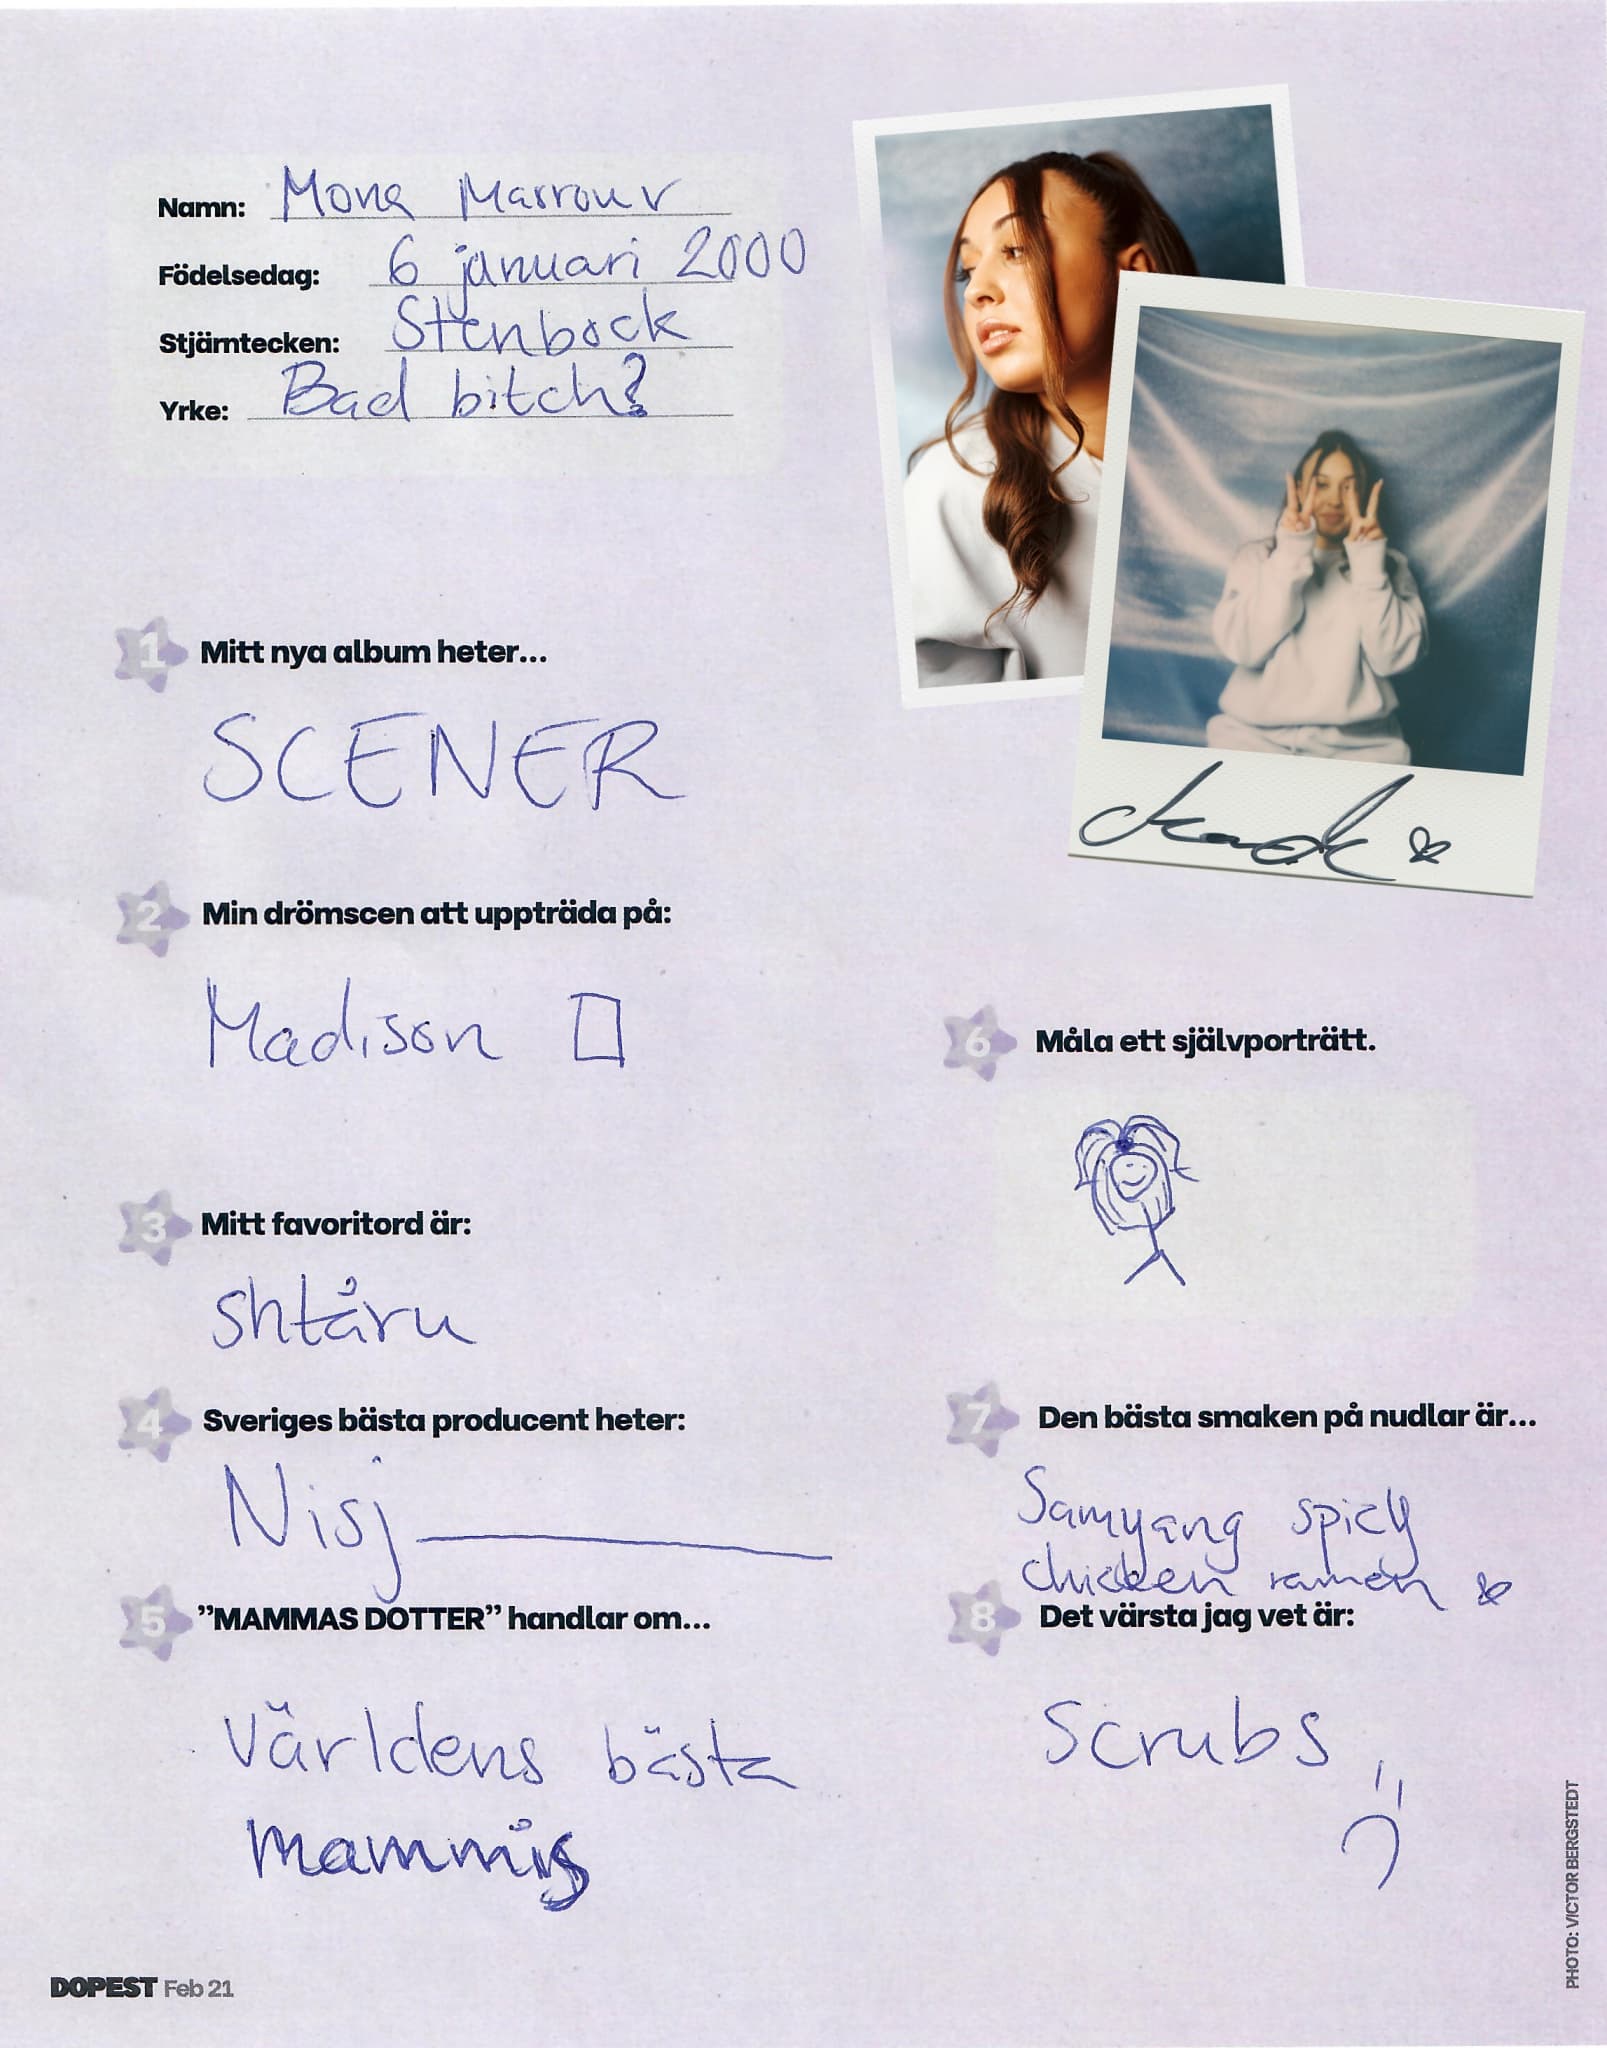 Namn: Mona Masrour
Födelsedag: 6 januari 2000
Stjärntecken: Stenbock
Yrke: Bad bitch?
1 Mitt nya album heter...
SCENER
2 Min drömscen att uppträda på:
Madison □
3 Mitt favoritord är:
shtåru
4 Sveriges bästa producent heter:
Nisj
5 ”MAMMAS DOTTER” handlar om...
Världens bästa
mammis
6 Måla ett självporträtt.
7 Den bästa smaken på nudlar är...
Samyang spicy
chicken ramen
8 Det värsta jag vet är:
Scrubs
DOPEST Feb 21
PHOTO: VICTOR BERGSTEDT